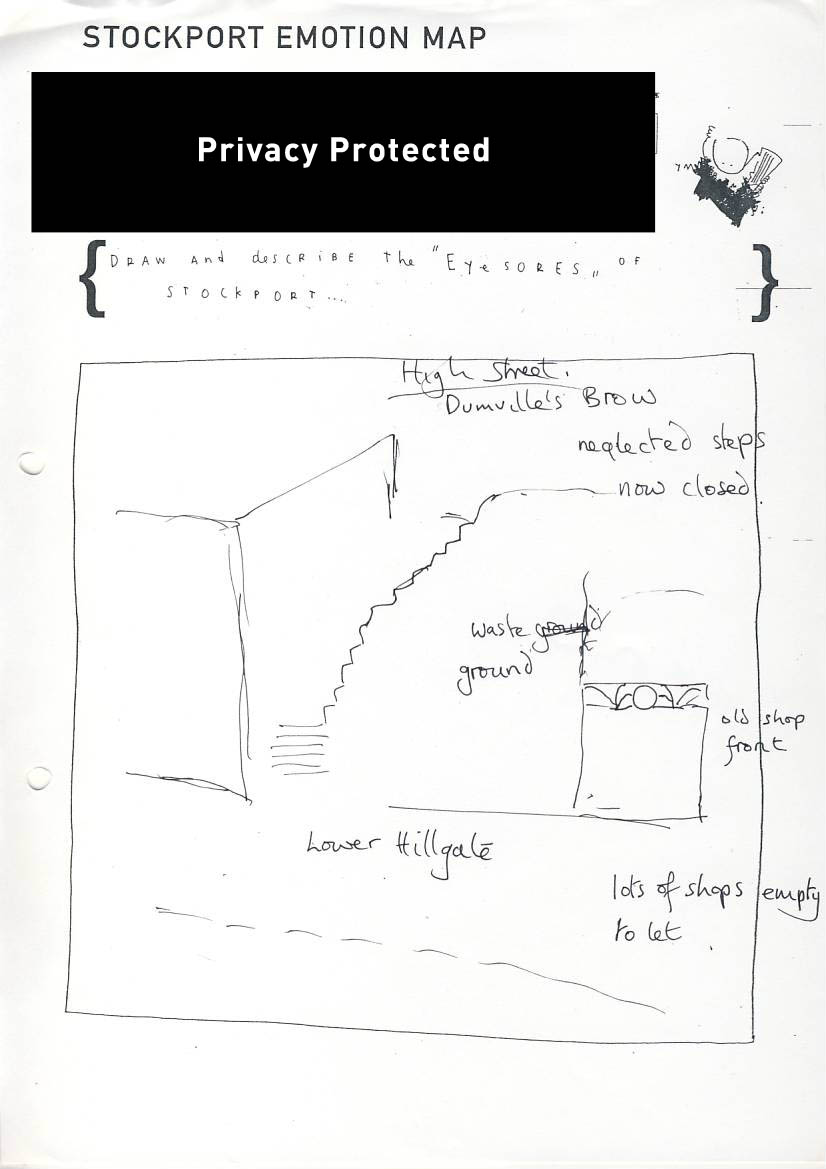 STOCKPORT EMOTION MAP
Privacy Protected
DRAW And desCRiBE the "EyeSORES„ OF
STOCKPORT....
High Street.
Dumville's Brow
neglected steps
now closed.
waste ground
ground
old shop
front
Lower Hillgate
lots of shops empty
to let.